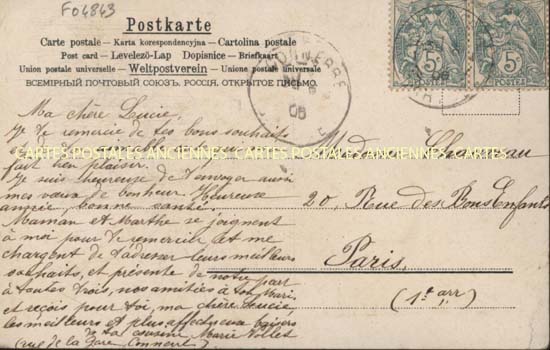 F04843
Postkarte
Carte postale — Karta korespondencyjna — Cartolina postale
Post card — Levelező-Lap Dopisnice — Briefkaart
Union postale universelle — Weltpostverein — Unione postale universale
ВСЕМІРНЫЙ ПОЧТОВЫЙ СОЮЗЪ. РОССІЯ. ОТКРЫТОЕ ПИСЬМО.
5
POSTES
5
POSTES
06
Ma chère Lucie,
Je te remercie de tes bons souhaits
fait bien plaisir.
Je suis heureuse de t'envoyer aussi
mes vœux de bonheur. Heureuse
année, bonne santé.
Maman et Marthe se joignent
à moi pour te remercier, et me
chargent de t'adresser leurs meilleurs
souhaits, et présente de notre part
à toutes trois, nos amitiés à ton Mari,
et reçois pour toi, ma chère Lucie,
les meilleurs et plus affectueux baisers
de ta cousine Marie
(rue de la Gare,
CARTES POSTALES ANCIENNES CARTES POSTALES ANCIENNES CARTES POSTALES ANCIENNES
Madame
20, Rue des Bons Enfants
Paris
(1er arr)